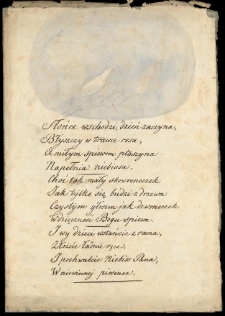 Słońce wschodzi, dzień zaczyna,
Błyszczy w trawie rosa,
A miłym śpiewem ptaszyna
Napełnia niebiosa.
Choć tak mały skowroneczek
Jak tylko się budzi z drzewa
Czystym głosem jak dzwoneczek
Wdzięczność Bogu śpiewa.
I wy dzieci wstańcie z rana,
Złóżcie ręce,
I pochwalcie Pana,
W niewinnej piosence.